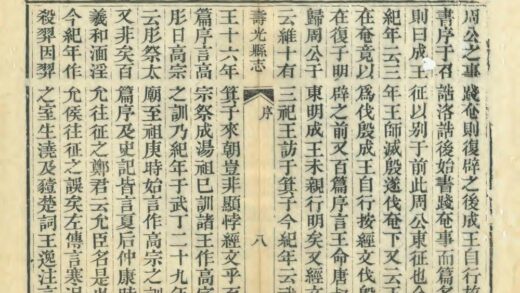 周公之事踐奄則復辟之後成王自行故
書序于召誥洛誥後始書踐奄事而篇名
則曰成王征以别于前此周公東征也今
紀年云三年王師滅殷遂伐奄下又云王
在奄竟以爲伐殷成王自行按經文伐殷
在復子明辟之前又百篇序言王命唐
歸周公于東明成王未親行明矣又經
云維十有三祀王訪于箕子今紀年云武
壽光縣志
序
八
王十六年箕子來朝豈非顯悖經文乎百
篇序言高宗祭成湯祖已訓諸王作高宗
肜日高宗之訓乃紀年于武丁二十九年
云肜祭太廟至祖庚時始言作高宗之訓
又非矣百篇序及史記皆言夏后仲康時
羲和湎淫允往征之鄭君云允臣名是也
今紀年作允侯往征之誤矣左傳言寒浞
殺羿因羿之室生澆及豷楚詞王逸注言